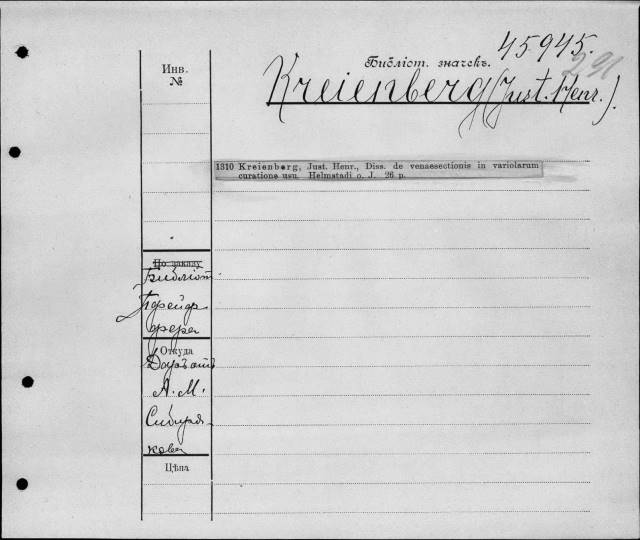 45945.
291
Инв.
№
Библіот. значекъ.
Kreienberg (Just. Henr.).
1310 Kreienberg, Just. Henr., Diss. de venaesectionis in variolarum
curatione usu. Helmstadi o. J. 26 p.
По заказу
Библіот
Пфейф-
фера
Откуда
А. М.
Сибиря-
кова
Цѣна